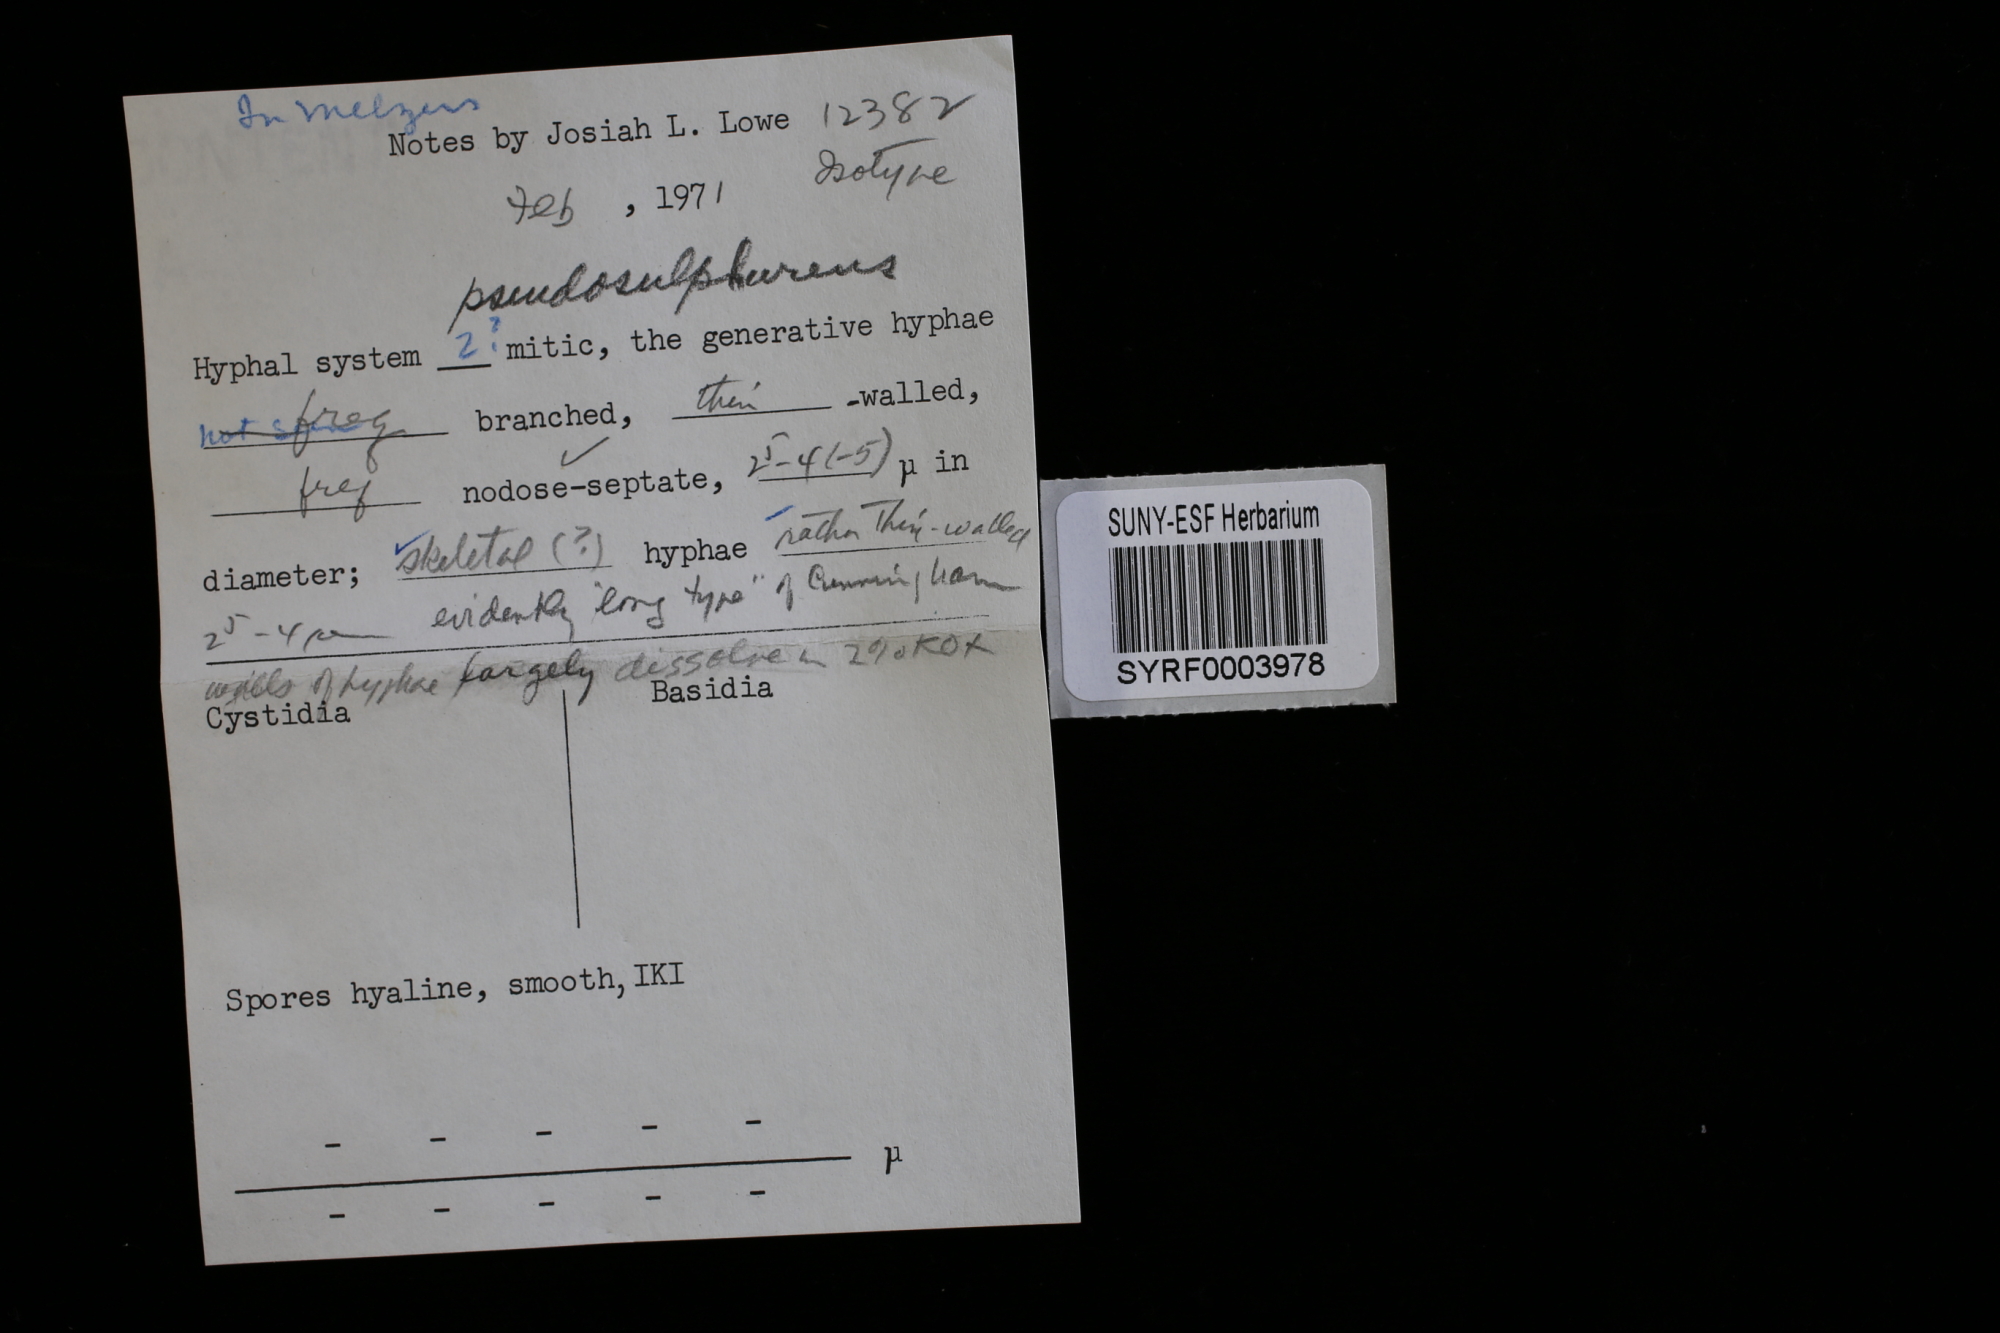 In Melzers
Notes by Josiah L. Lowe 12382
Isotype
Feb , 1971
pseudosulphureus
Hyphal system 2? mitic, the generative hyphae
not freq branched, thin -walled,
freq nodose-septate, 2⁵-4(-5) µ in
diameter; skeletal (?) hyphae rather thin-walled
2⁵-4 µm evidently "long type" of Cunningham
walls of hyphae largely dissolve in 2% KOH
Cystidia Basidia
Spores hyaline, smooth, IKI
- - - - -
µ
- - - - -
SUNY-ESF Herbarium
SYRF0003978